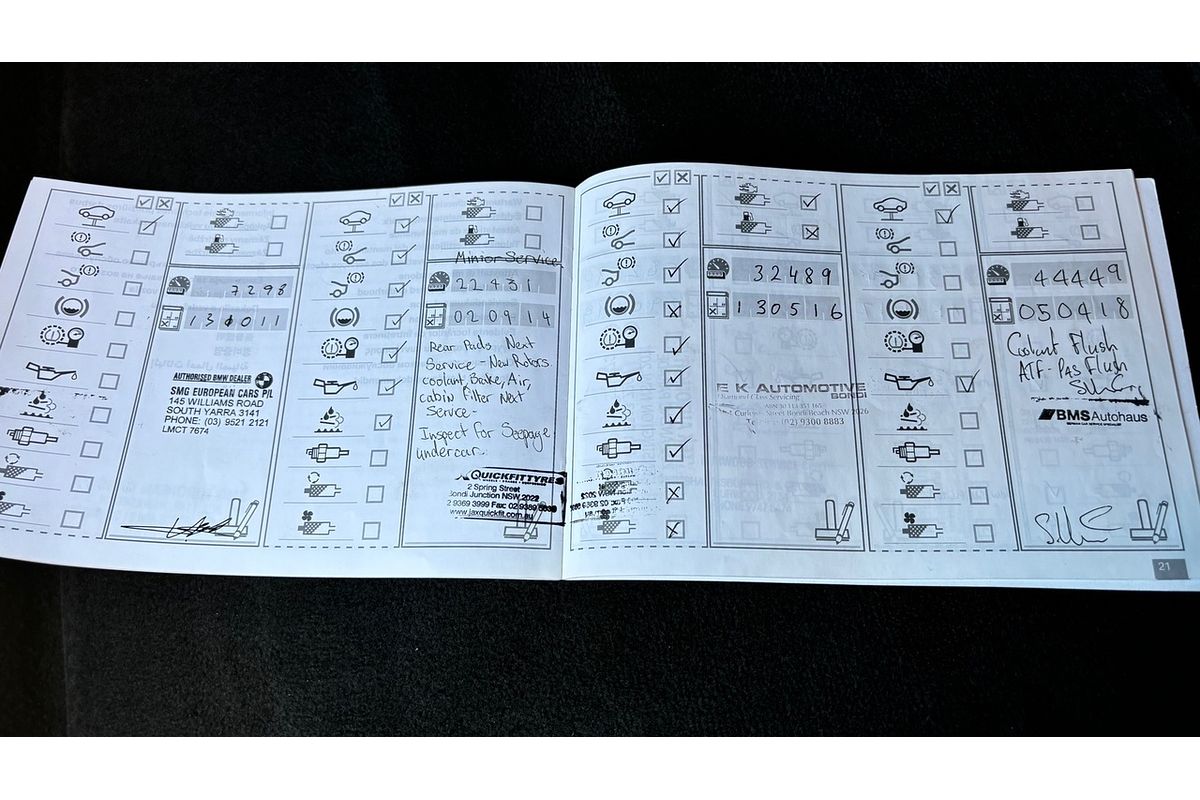 7298
131011
AUTHORISED BMW DEALER
SMG EUROPEAN CARS P/L
145 WILLIAMS ROAD
SOUTH YARRA 3141
PHONE: (03) 9521 2121
LMCT 7674
Minior Service
22431
020914
Rear Pads Next
Service - New Rotors.
coolant, Brake, Air,
cabin Filter Next
Service -
Inspect for Seepage
undercar.
QUICKFITTYRES
2 Spring Street
Bondi Junction NSW 2022
2 9369 3999 Fax: 02 9389
www.jaxquickfit.com.au
32489
130516
E K AUTOMOTIVE
BONDI
Diamond Class Servicing
Street Bondi Beach NSW 2026
(02) 9300 8883
44449
050418
Coolant Flush
ATF - Pas Flush
BMS Autohaus
21